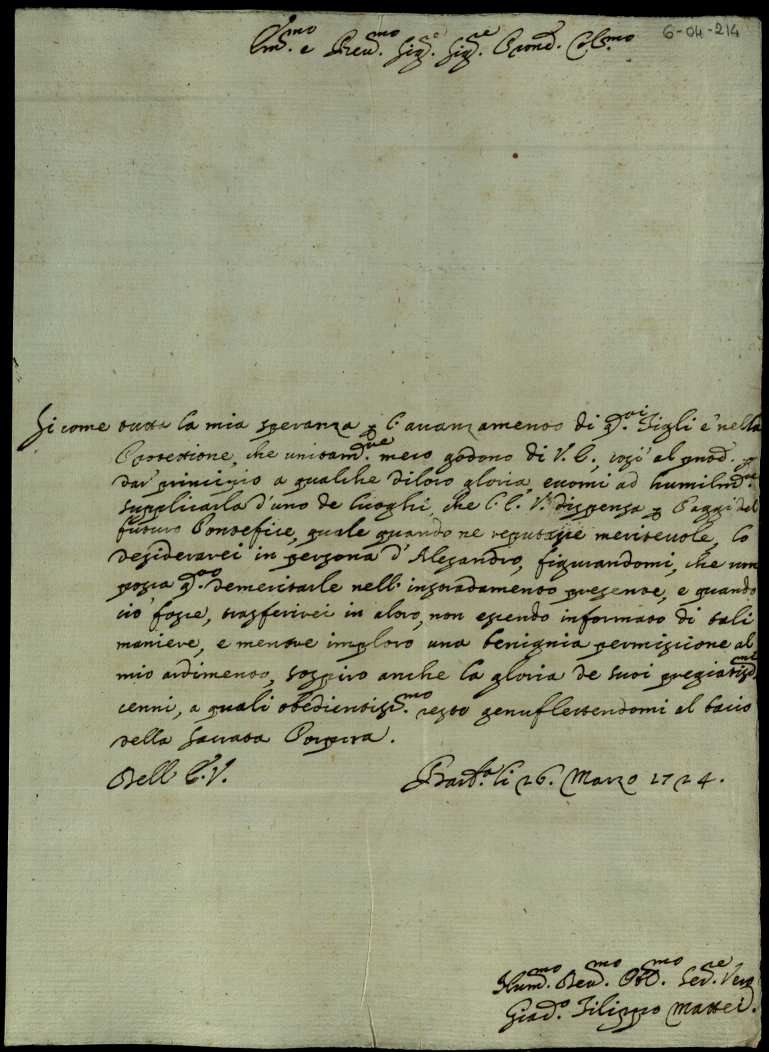 6-04-214
Em.mo e Reu.mo Sig.e Sig.re Prond. Col.mo
Si come tutta la mia speranza p l'auanzamento di q.sti Figli è nella
Protettione, che unicam.te meco godono di V. E., così al
dar principio a qualche di loro gloria, euomi ad humilm.te
supplicarla d'uno de luoghi, che l'E. V. dispensa p Paggi del
futuro Pontefice, quale quando ne reputasse meriteuole, lo
desiderarei in persona d'Alesandro, figurandomi, che non
possa q.sto demeritarle nell' instradamento presente, e quando
ciò fosse, trasferirei in altro, non essendo informato di tali
maniere, e mentre imploro una benignia permissione al
mio ardimento, sospiro anche la gloria de suoi pregiatiss.mi
cenni, a quali obedientiss.mo resto genuflettendomi al bacio
della Sacrata Porpora.
Dell E. V. li 26. Marzo 1724.
Hum.mo Deu.mo Obl.mo Ser.re Vero
Filippo Mattei.